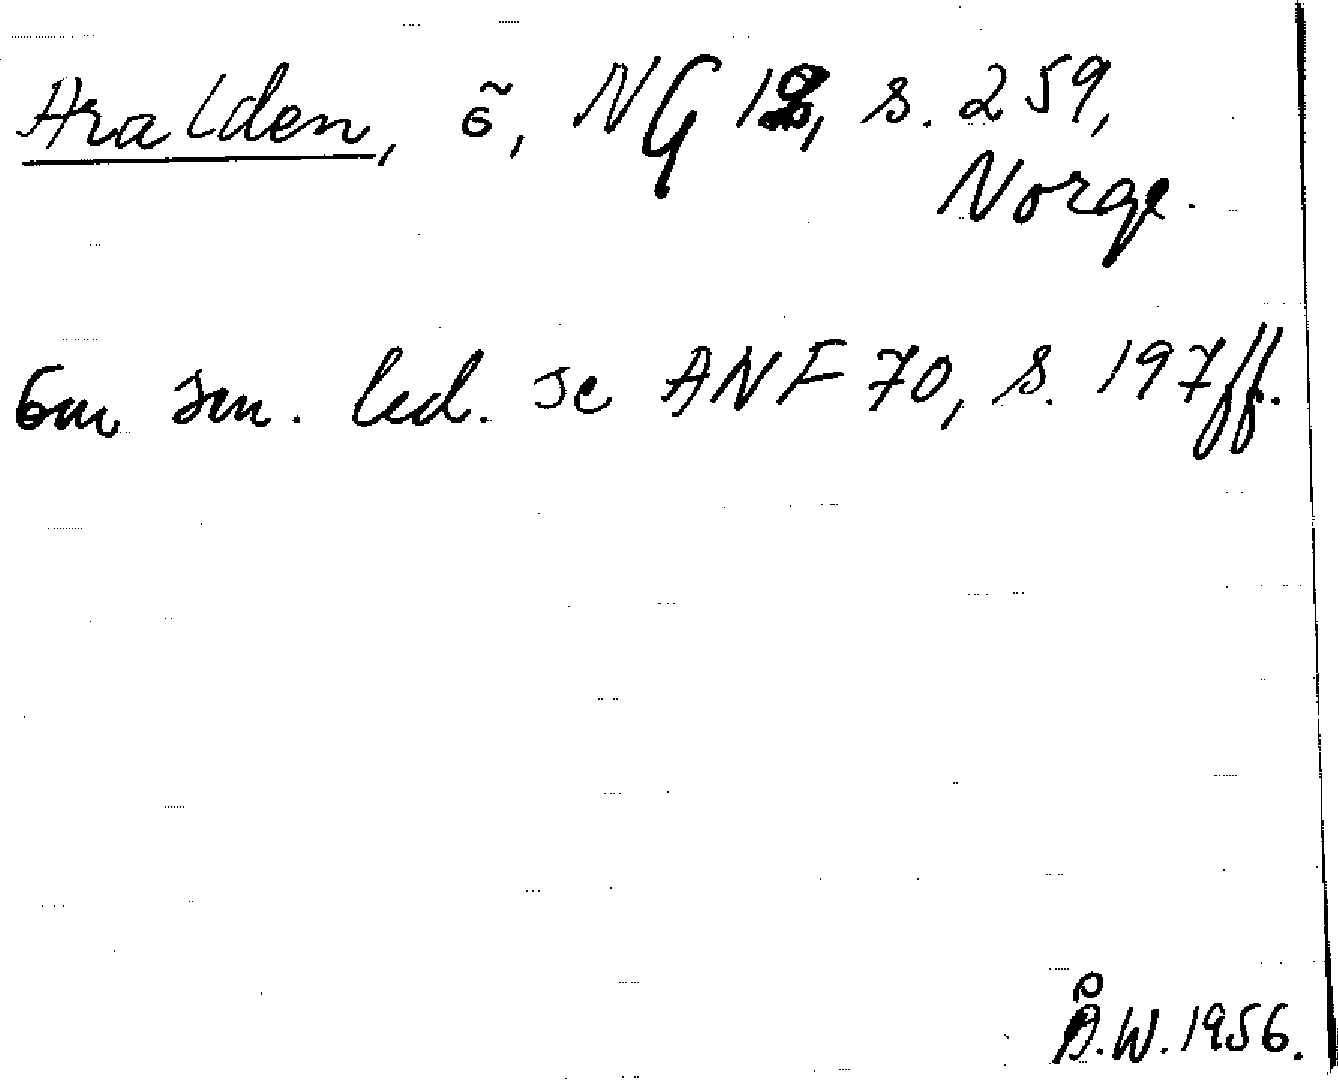 Aralden, ö, NG 12, s. 259,
Norge.
Om sen. led. se ANF 70, s. 197 ff.
Å.W. 1956.